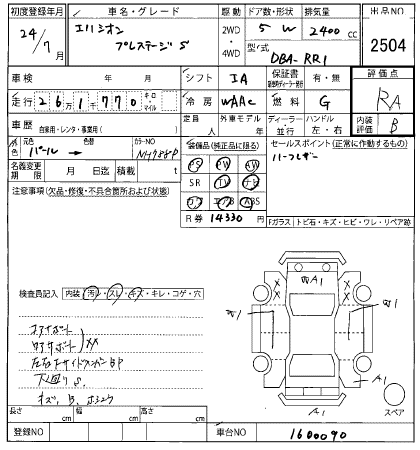 初度登録年月
車名・グレード
駆動
ドア数・形状
排気量
出品NO
24/7月
エリシオン
プレステージ S
2WD
・
4WD
5 W
2400 cc
型/式
DBA-RR1
2504
車検
年 月
シフト
IA
保証書
有・無
評価点
走行
261770
キロ・マイル
冷房
WAAC
燃料
G
RA
車歴
自家用・レンタ・事業用( )
定員
人
外車モデル
年
ディーラー・並行
ハンドル
左・右
内装評価
B
色
元色
パール→
色替
カラーNO
NH788P
装備品(純正品に限る)
セールスポイント(正常に作動するもの)
PS PW
ハーフレザー
名義変更期限
月 日迄
積載
t
SR TV ナビ
カワ エアB ABS
注意事項(欠品・修復・不具合箇所および状態)
R券 14330 円
Fガラス トビ石・キズ・ヒビ・ワレ・リペア跡
検査員記入
内装 汚レ・スレ・キズ・キレ・コゲ・穴
コアサポート
XX
下廻りS.
キズ、B、
A1
A1
A1
スペア
長さ cm
幅 cm
高さ cm
登録NO
車台NO
1600090